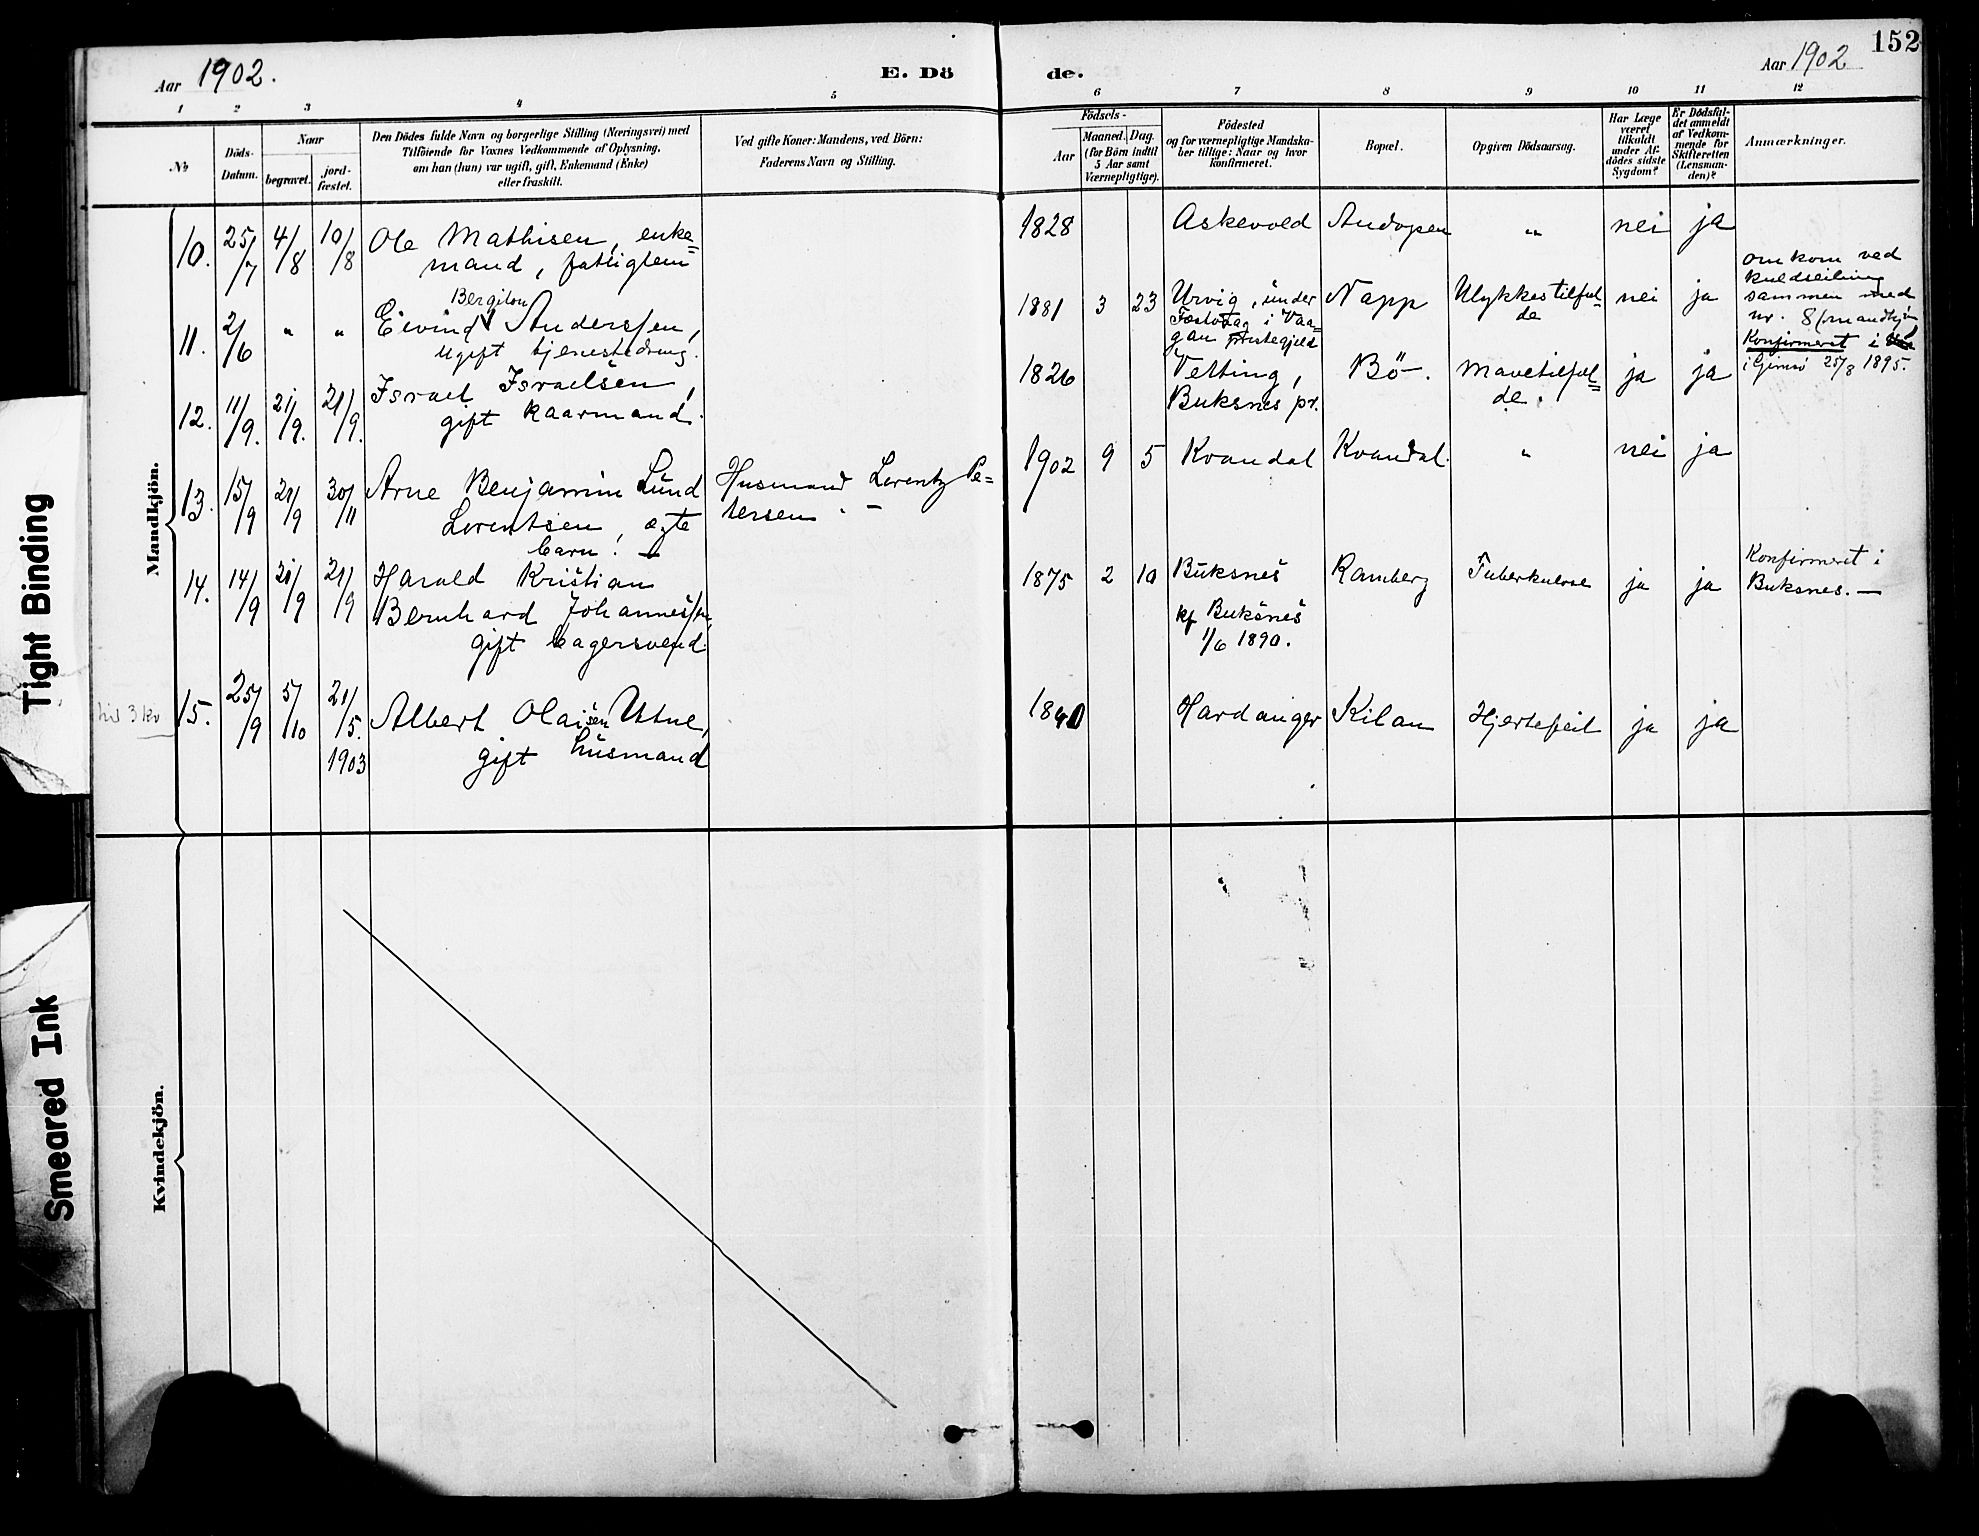 152
Aar 1902.
E. Dö
de.
Aar 1902
1 2 3 4 5 6 7 8 9 10 11 12
No
Döds-
Datum.
Naar
begravet.
jord-
fæstet.
Den Dödes fulde Navn og borgerlige Stilling (Næringsvei) med
Tilföiende for Voxnes Vedkommende af Oplysning,
om han (hun) var ugift, gift, Enkemand (Enke)
eller fraskilt.
Ved gifte Koner: Mandens, ved Börn:
Faderens Navn og Stilling.
Födsels-
Aar
Maaned.
Dag.
(for Börn indtil
5 Aar samt
Værnepligtige).
Födested
og for værnepligtige Mandska-
ber tillige: Naar og hvor
konfirmeret.
Bopæl.
Opgiven Dödsaarsag.
Har Læge
været
tilkaldt
under Af-
dödes sidste
Sygdom?
Er Dödsfal-
det anmeldt
af Vedkom-
mende for
Skifteretten
(Lensman-
den)?
Anmærkninger.
Mandkjön.
10. 25/7 4/8 10/8 Ole Mathisen, enke=
mand, fattiglem
1828 Askevold Andopen " nei ja
11. 2/6 " " Eivind Anderssen,
ugift tjenestedreng.
1881 3 23 Urvig, under
i Vaa-
gan Præstegjeld
Napp Ulykkestilfæl=
de nei ja
omkom ved
kuldseiling
sammen med
nr. 8/mandkjön
Konfirmeret i
i Gimsö 25/8 1895.
12. 11/9. 21/9. 21/9. Israel Israelsen,
gift kaarmand.
1826 Vetting,
Buksnes pr.
Bö-. Mavetilfæl=
de. ja ja
13. 15/9 21/9 30/11 Arne Benjamin Lund
Lorentsen, ægte
barn.
Husmand Lorentz Pe-
tersen. -
1902 9 5 Kvandal Kvandal. " nei ja
14. 14/9 21/9 21/9 Harald Kristian
Bernhard Johannessen,
gift bagersvend.
1875 2 10 Buksnes
kf Buksnes
1/6 1890.
Ramberg Tuberkulose ja ja
Konfirmeret i
Buksnes. -
15. 25/9 5/10 21/5.
1903
Albert Olaisen Utne,
gift husmand
1840 Hardanger Kilan Hjertefeil ja ja
Kvindekjön.
Tight Binding
Smeared Ink